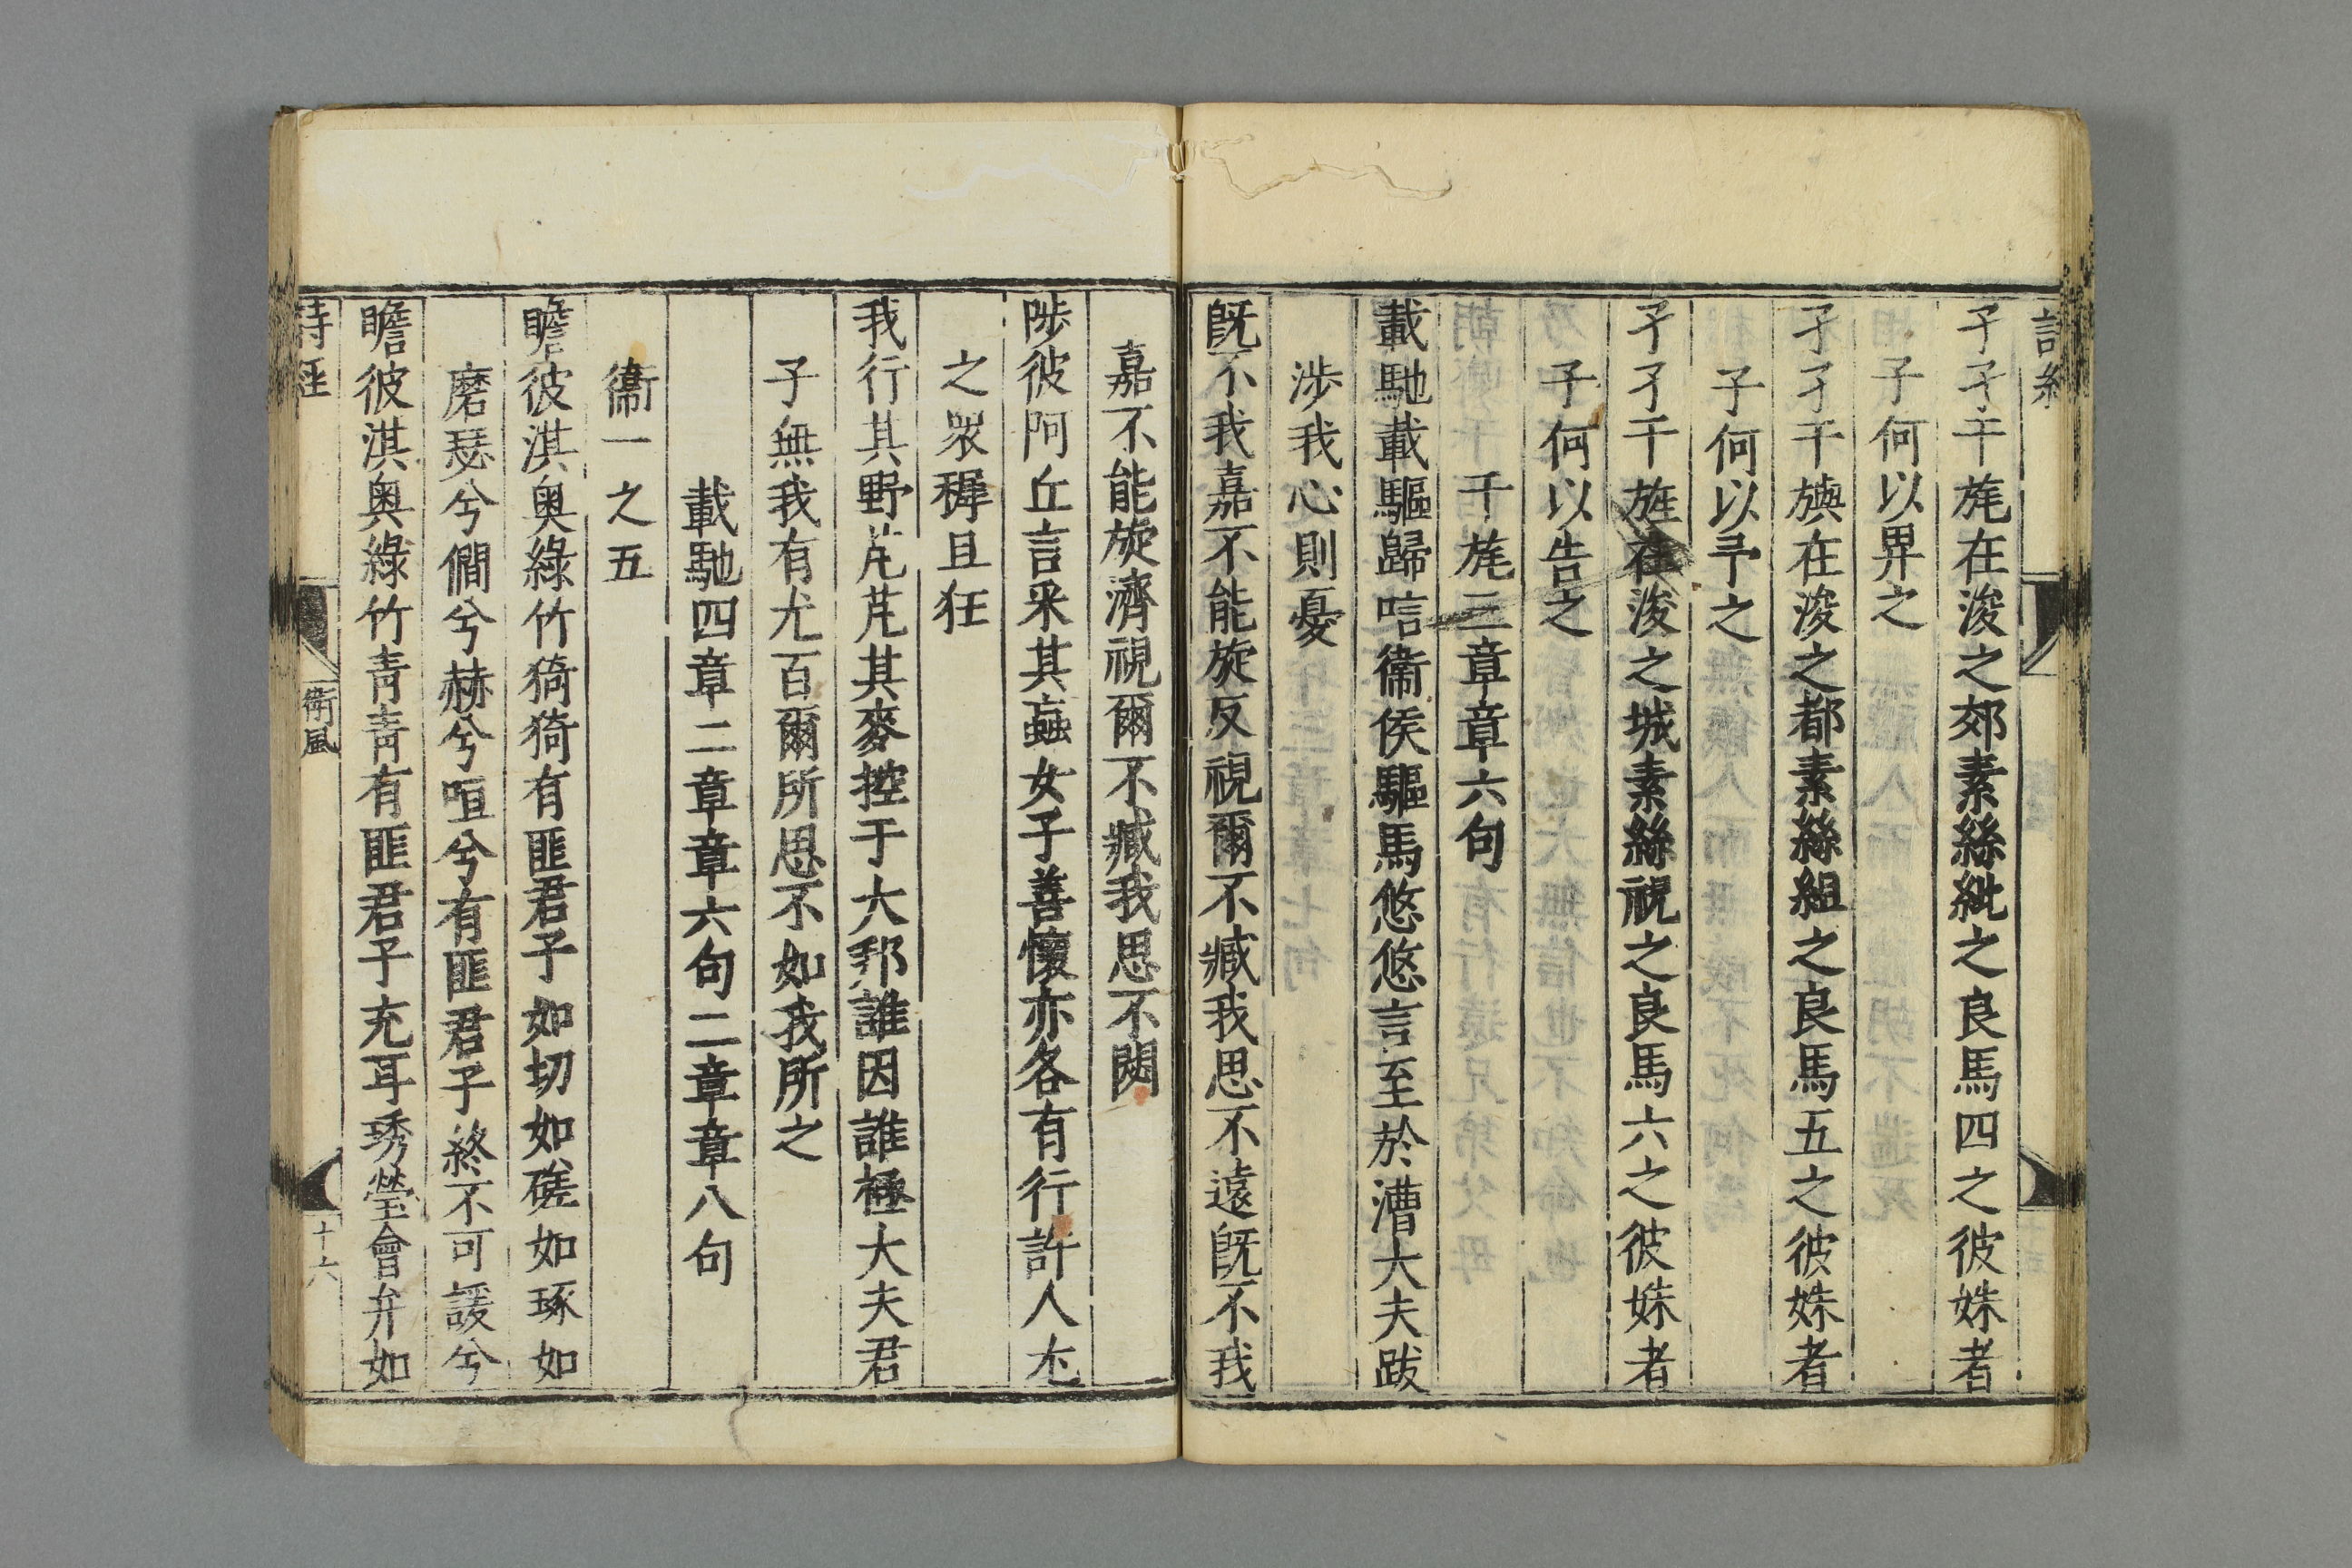 孑孑干旄在浚之郊素絲紕之良馬四之彼姝者
子何以畀之
孑孑干旟在浚之都素絲組之良馬五之彼姝者
子何以予之
孑孑干旌在浚之城素絲祝之良馬六之彼姝者
子何以告之
干旄三章章六句
載馳載驅歸唁衞侯驅馬悠悠言至於漕大夫跋
涉我心則憂
旣不我嘉不能旋反視爾不臧我思不遠旣不我
嘉不能旋濟視爾不臧我思不閟
陟彼阿丘言采其蝱女子善懷亦各有行許人尤
之衆穉且狂
我行其野芃芃其麥控于大邦誰因誰極大夫君
子無我有尤百爾所思不如我所之
載馳四章二章章六句二章章八句
衞一之五
瞻彼淇奥綠竹猗猗有匪君子如切如磋如琢如
磨瑟兮僩兮赫兮咺兮有匪君子終不可諼兮
瞻彼淇奥綠竹青青有匪君子充耳琇瑩會弁如
詩經
衛風
十六